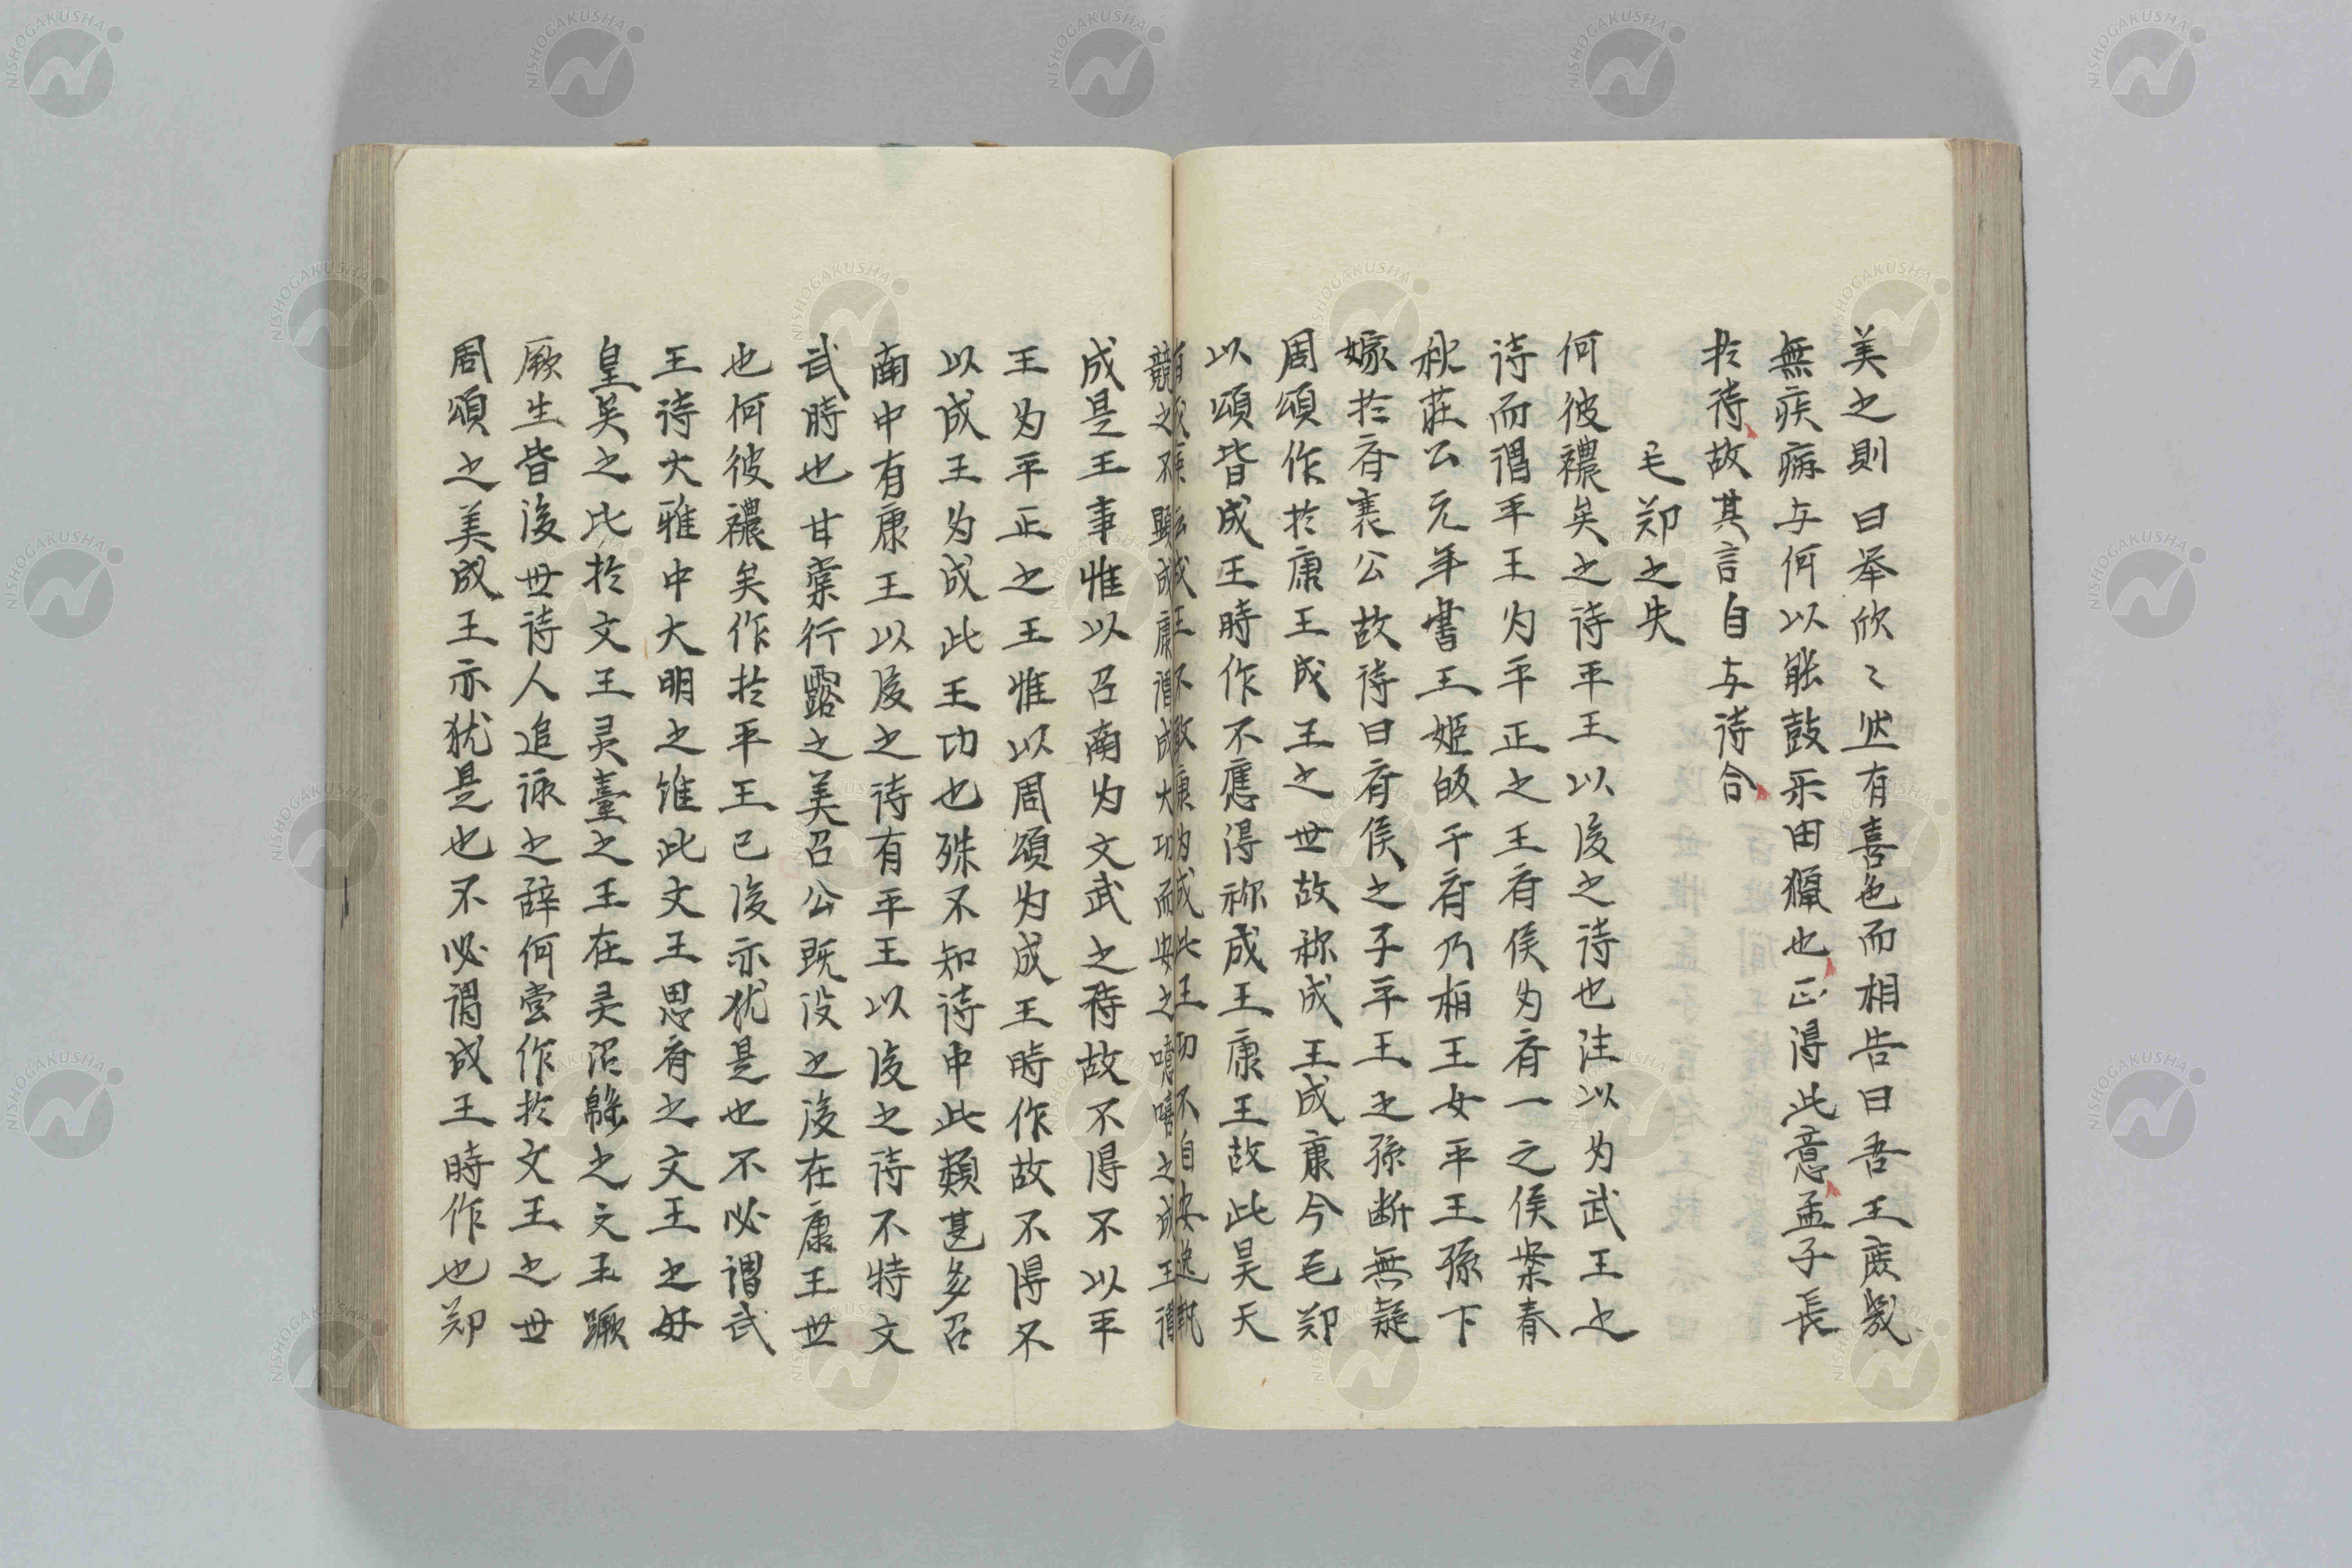 美之則曰举欣〻然有喜色而相告曰吾王庶幾
無疾病与何以能鼓乐田獵也正得此意孟子長
於诗故其言自与诗合
毛郑之失
何彼襛矣之诗平王以後之诗也注以为武王之
诗而谓平王为平正之王齐侯为齐一之侯桉春
秋莊公元年書王姬皈于齐乃桓王女平王孫下
嫁於齐襄公故诗曰齐侯之子平王之孫断無疑
周頌作於康王成王之世故称成王成康今毛郑
以頌皆成王時作不應得称成王康王故此昊天
成是王事惟以召南为文武之诗故不得不以平
王为平正之王惟以周頌为成王時作故不得不
以成王为成此王功也殊不知诗中此類甚多召
南中有康王以後之诗有平王以後之诗不特文
武時也甘棠行露之美召公既没之後在康王世
也何彼襛矣作於平王已後亦犹是也不必谓武
王诗大雅中大明之维此文王思齐之文王之母
皇矣之比於文王灵臺之王在灵沼緜之文王蹶
厥生皆後世诗人追詠之辞何尝作於文王之世
周頌之美成王亦犹是也不必谓成王時作也郑